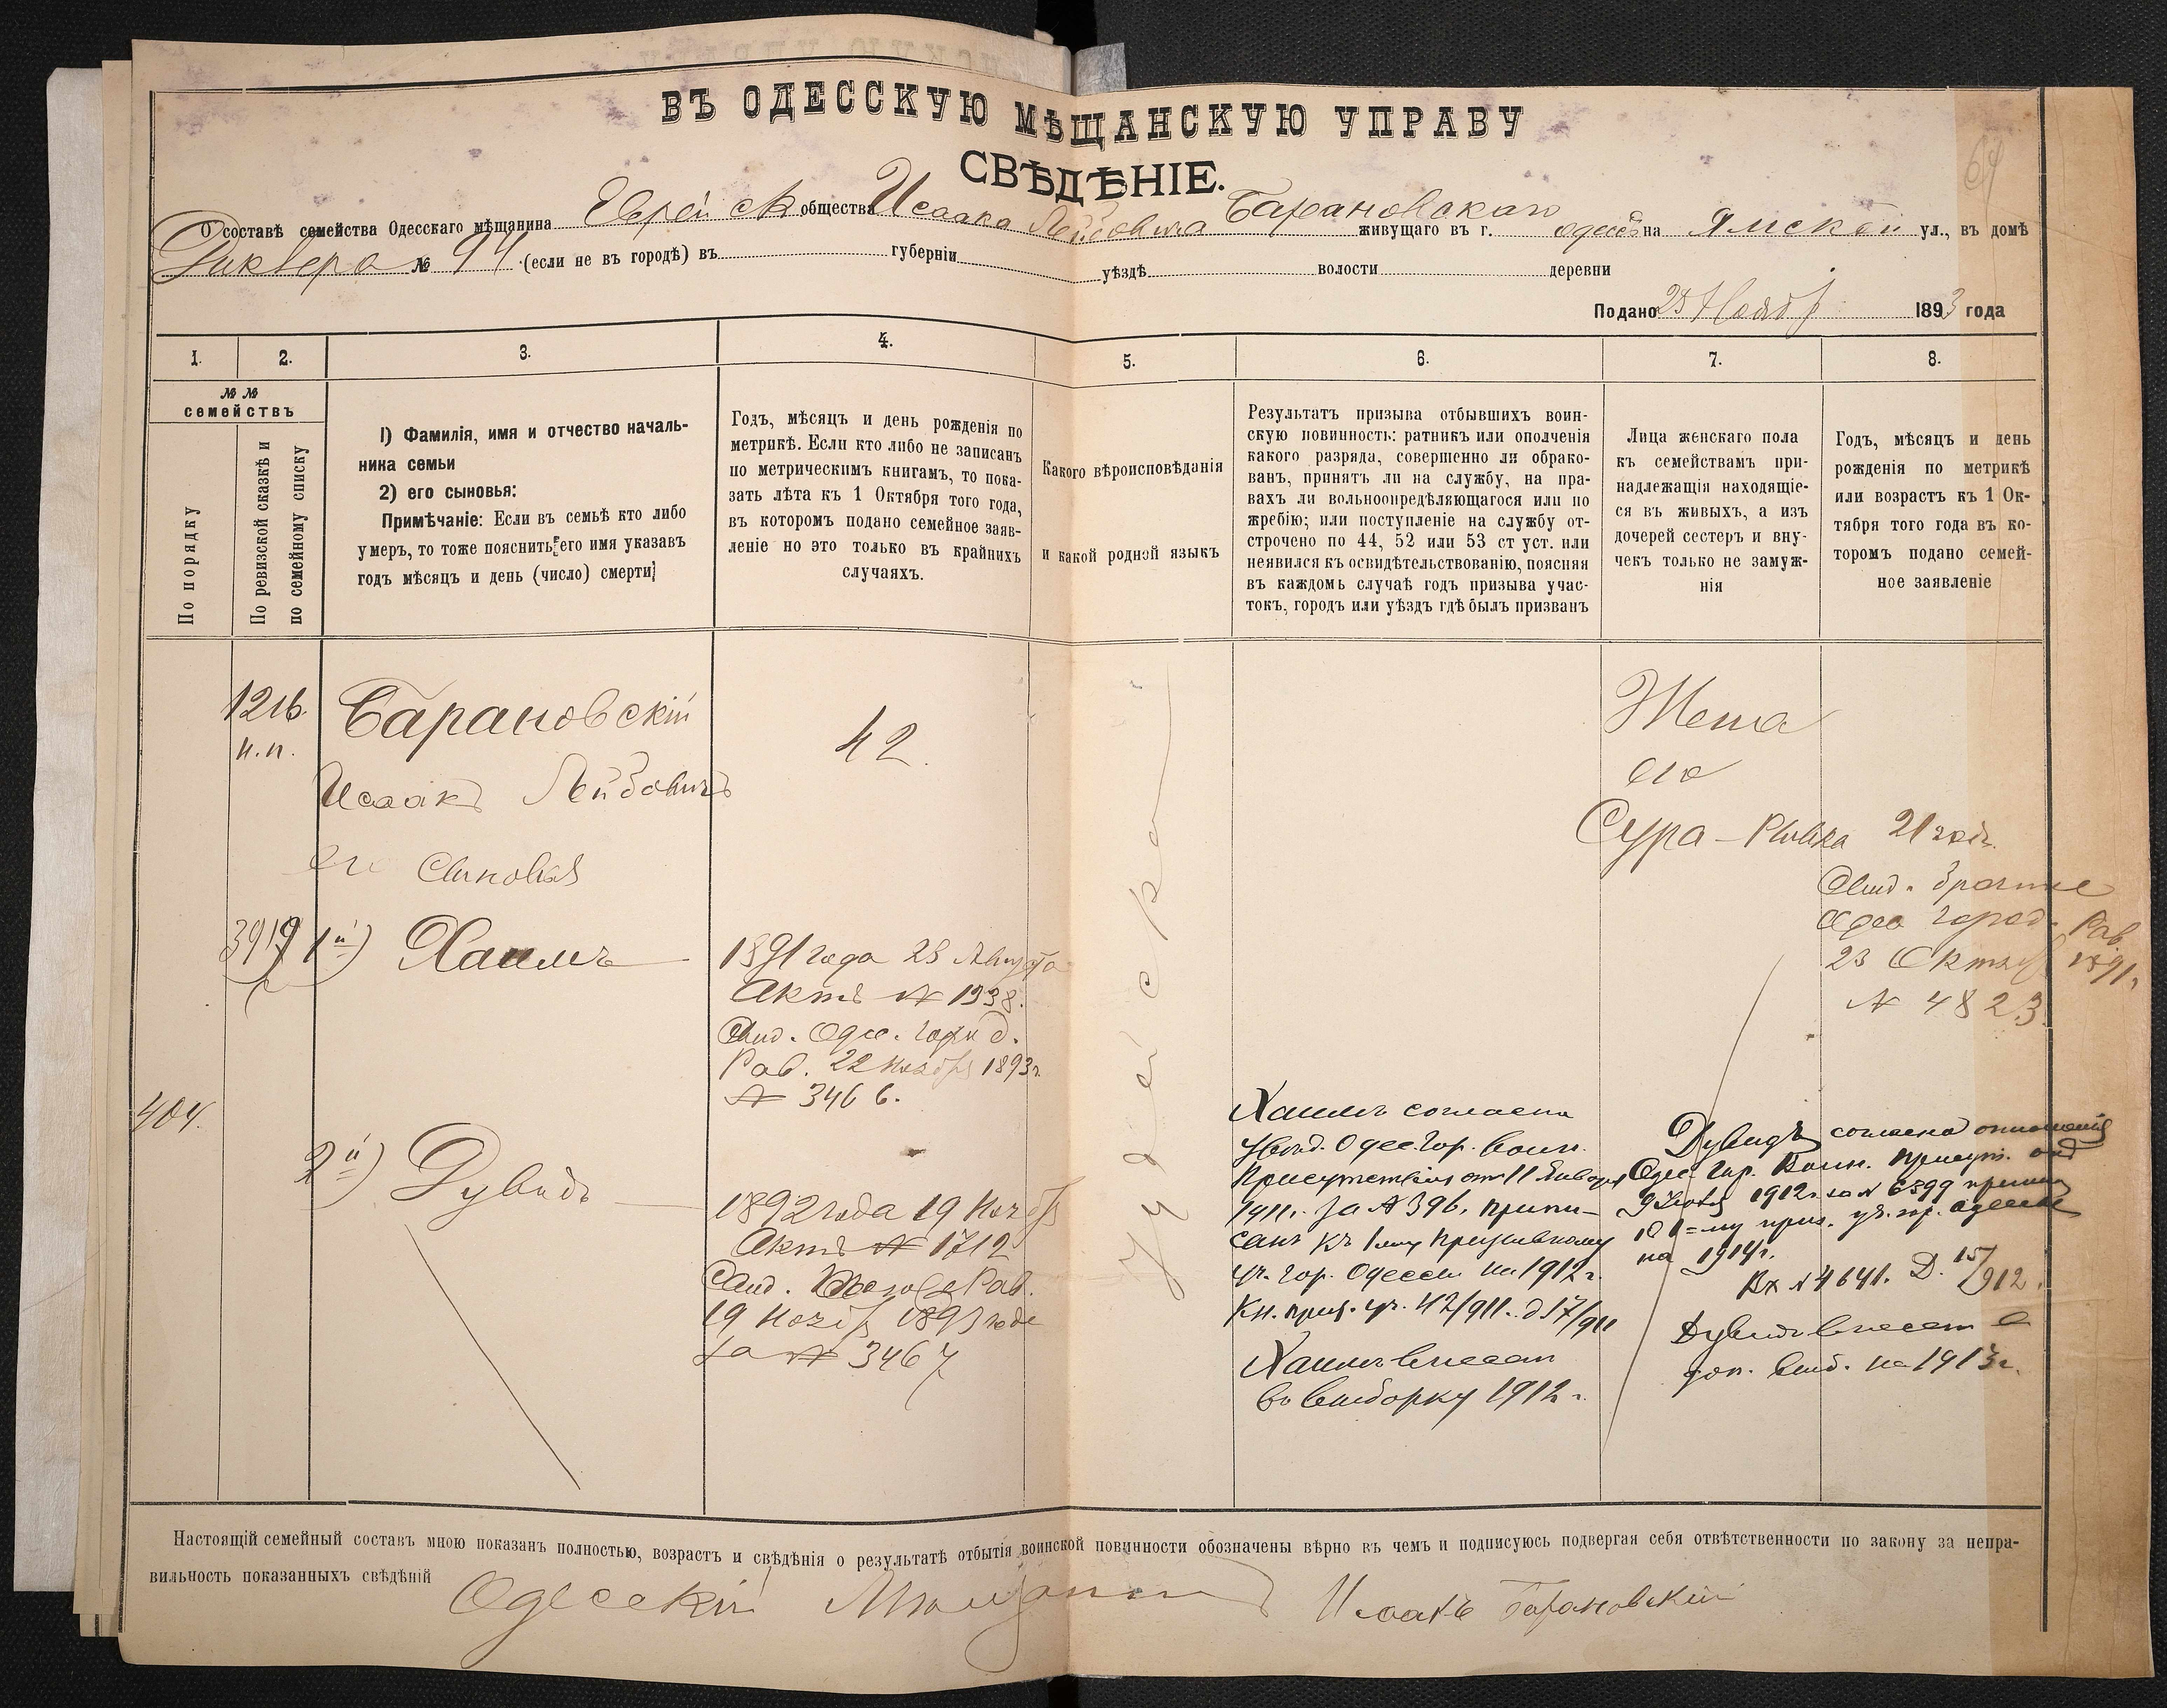 ВЪ ОДЕССКУЮ МѢЩАНСКУЮ УПРАВУ
СВѢДѢНІЕ.
64
О составѣ семейства Одесскаго мѣщанина Еврейск общества Исаака Лейбовича Барановскаго живущаго въ г. Одессѣ на Ямской ул., въ домѣ
№ 94 (если не въ городѣ) въ губерніи уѣздѣ волости деревни
Подано 25 Ноября 1893 года
1. 2. 3. 4. 5. 6. 7. 8.
№ № семействъ
По порядку
По ревизской сказкѣ и
по семейному списку
1) Фамилія, имя и отчество началь-
ника семьи
2) его сыновья:
Примѣчаніе: Если въ семьѣ кто либо
умеръ, то тоже пояснить его имя указавъ
годъ мѣсяцъ и день (число) смерти
Годъ, мѣсяцъ и день рожденія по
метрикѣ. Если кто либо не записанъ
по метрическимъ книгамъ, то пока-
зать лѣта къ 1 Октября того года,
въ которомъ подано семейное заяв-
леніе но это только въ крайнихъ
случаяхъ.
Какого вѣроисповѣданія
и какой родной языкъ
Результатъ призыва отбывшихъ воин-
скую повинность: ратникъ или ополченія
какого разряда, совершенно ли обрако-
ванъ, принятъ ли на службу, на пра-
вахъ ли вольноопредѣляющагося или по
жребію; или поступленіе на службу от-
строчено по 44, 52 или 53 ст уст. или
неявился къ освидѣтельствованію, поясняя
въ каждомъ случаѣ годъ призыва учас-
токъ, городъ или уѣздъ гдѣ былъ призванъ
Лица женскаго пола
къ семействамъ при-
надлежащія находящіе-
ся въ живыхъ, а изъ
дочерей сестеръ и вну-
чекъ только не замуж-
нія
Годъ, мѣсяцъ и день
рожденія по метрикѣ
или возрастъ къ 1 Ок-
тября того года въ ко-
торомъ подано семей-
ное заявленіе
1216.
н.п.
Барановскій
Исаакъ Лейбовичъ
его сыновья
42
3919
1й) Хаимъ
1891 года 23 Августа
Актъ № 1938.
Свид. Одес. Город.
Рав. 22 Ноября 1893 г.
№ 3466.
404.
2й) Дувидъ
1892 года 19 Ноябр
Актъ № 1712
Рав.
19 Ноябр 1893 года
за № 3467
Іудейской
Хаимъ согласно
увѣд. Одес. Гор. Воин.
Присутствія отъ 11 Января
1911 г. за № 396, припи-
санъ къ 1му призывному
уч. гор. Одессы на 1912 г.
Кн. приз. уч. 42/911. д 17/911
Хаимъ внесенъ
въ выборку 1912 г.
Жена
его
Сура-Рывка 21 годъ
Свид. брачное
Одес город. Рав.
23 Октяб 1891 г.
№ 4823
Дувидъ согласно отношенія
Одес. Гор. Воин. Присут. отъ
1912 г. за № 6399
къ 1-му приз. уч. гор. Одессы
на 1914 г.
Вх № 4641. Д. 15/912.
Дувидъ внесенъ в
доп. выб. на 1913 г.
Настоящій семейный составъ мною показанъ полностью, возрастъ и свѣдѣнія о результатѣ отбытія воинской повинности обозначены вѣрно въ чемъ и подписуюсь подвергая себя отвѣтственности по закону за непра-
вильность показанныхъ свѣдѣній Одесскій Мѣщанинъ Исаакъ Барановскій